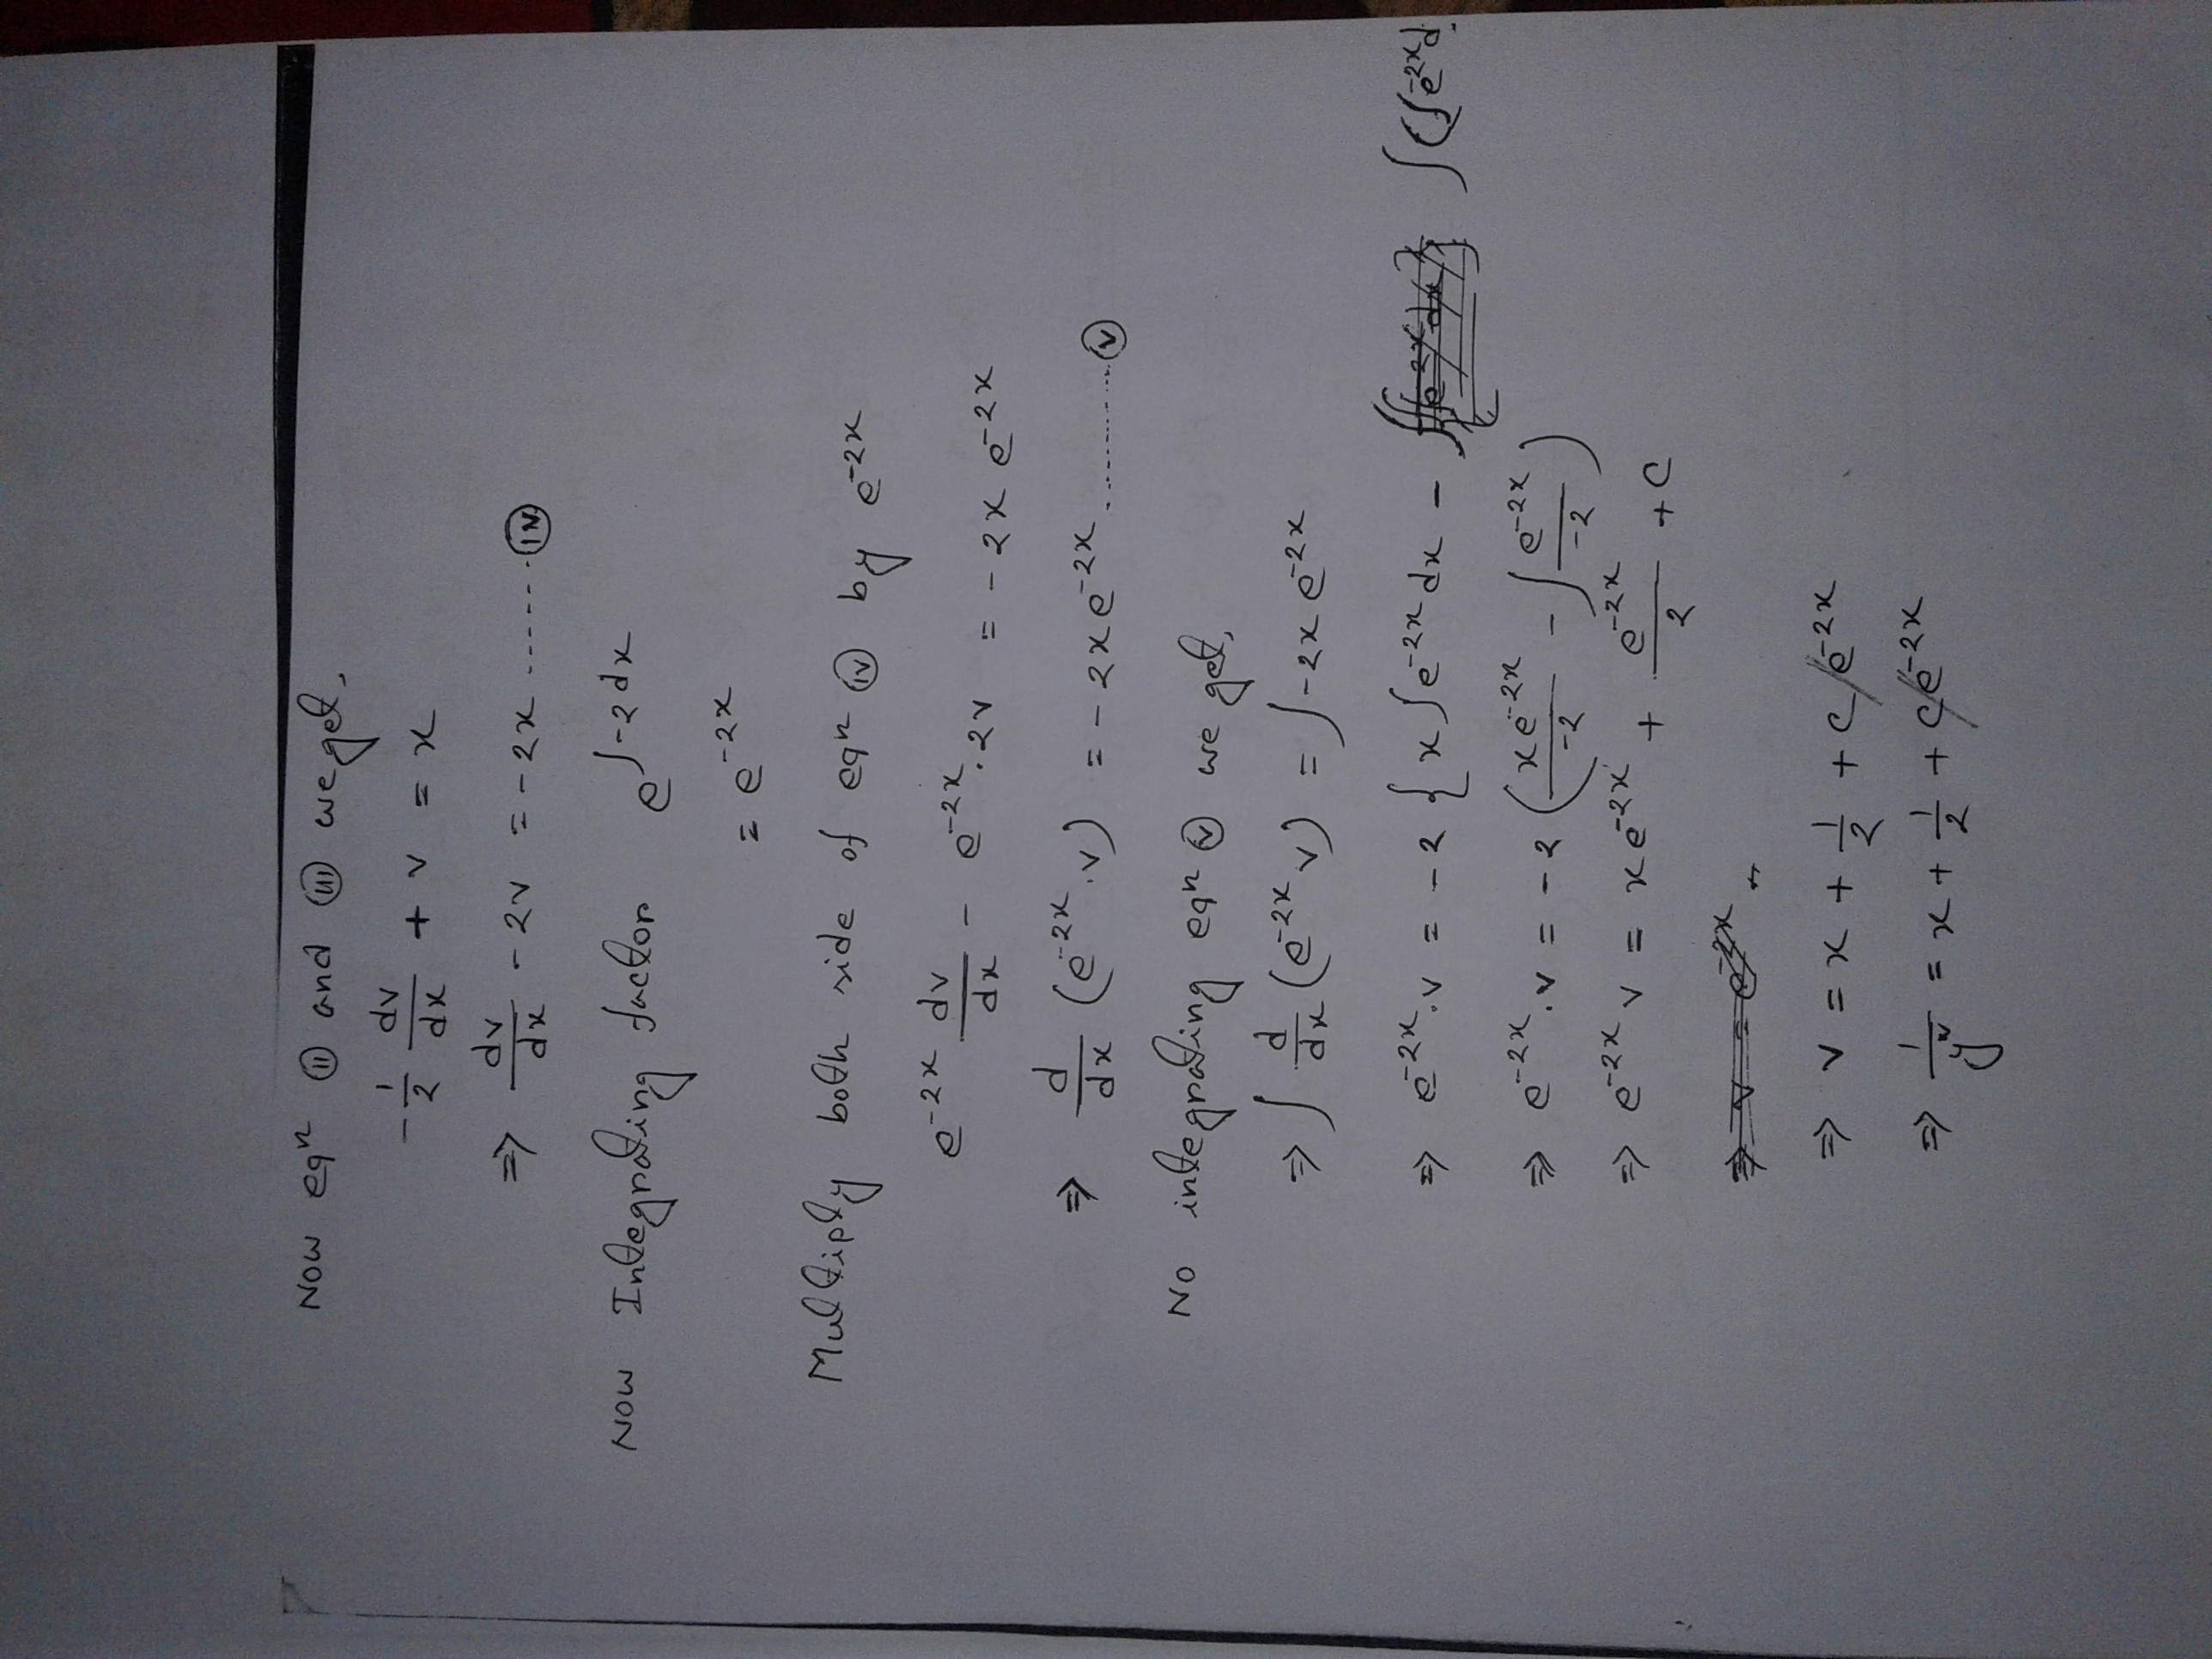 Now eqⁿ (ii) and (iii) we get,
-1/2 dv/dx + v = x
⇒ dv/dx - 2v = -2x ...... (iv)
Now Integrating factor e^∫-2dx
= e^-2x
Multiply both side of eqⁿ (iv) by e^-2x
e^-2x dv/dx - e^-2x . 2v = -2x e^-2x
⇒ d/dx (e^-2x . v) = -2x e^-2x .......... (v)
No integrating eqⁿ (v) we get,
⇒ ∫ d/dx (e^-2x v) = ∫ -2x e^-2x
⇒ e^-2x . v = -2 { x ∫ e^-2x dx - ∫ (∫ e^-2x d
⇒ e^-2x . v = -2 ( x e^-2x / -2 - ∫ e^-2x / -2 )
⇒ e^-2x v = x e^-2x + e^-2x / 2 + c
⇒ v = e^-2x
⇒ v = x + 1/2 + c / e^-2x
⇒ 1/y² = x + 1/2 + c / e^-2x